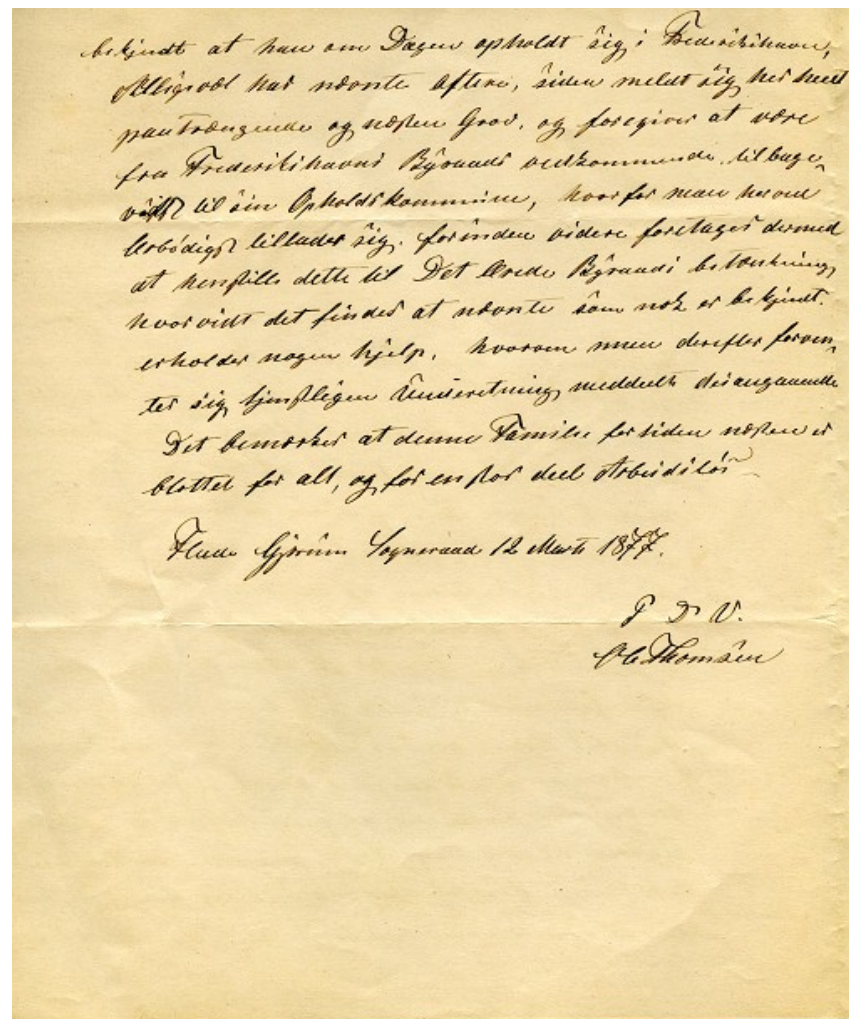 bekjendt at han om Dagen opholdt sig i Frederikshavn,
Alligevel har nævnte oftere, siden meldt sig her heelt
paatrængende og næsten Grov, og foregiver at være
fra Frederikshavns Byraads vedkommende, tilbage-
viist til sin Opholdskommune, hvorfor man herved
ærbødigst tillader sig, forinden videre foretages dermed
at henstille dette til Det ærede Byraads betænkning,
hvorvidt det findes at nævnte som nok er bekjendt.
erholder nogen hjelp, hvorom man derefter forven-
ter sig tjenstligen Underretning meddeelt desangaaende
Det bemærkes at denne Familie fortiden næsten er
blottet for alt, og for en stor deel Arbeidsløs
Flade Gjærum Sogneraad 12 Marts 1877.
P D V.
Ole Thomsen